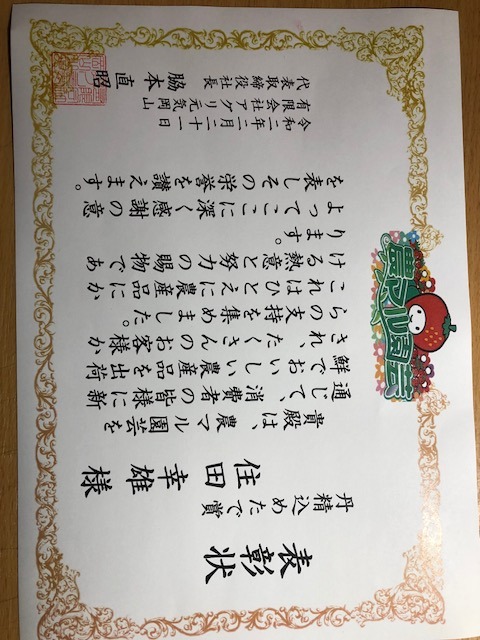 農マル園芸
表彰状
丹精込めたで賞
住田幸雄様
貴殿は、農マル園芸を
通じて、消費者の皆様に新
鮮でおいしい農産品を出荷
され、たくさんのお客様か
らの支持を集めました。
これはひとえに農産品にか
ける熱意と努力の賜物であ
ります。
よってここに深く感謝の意
を表しその栄誉を讃えます。
令和二年二月二十一日
有限会社アグリ元気岡山
代表取締役社長
脇本直昭